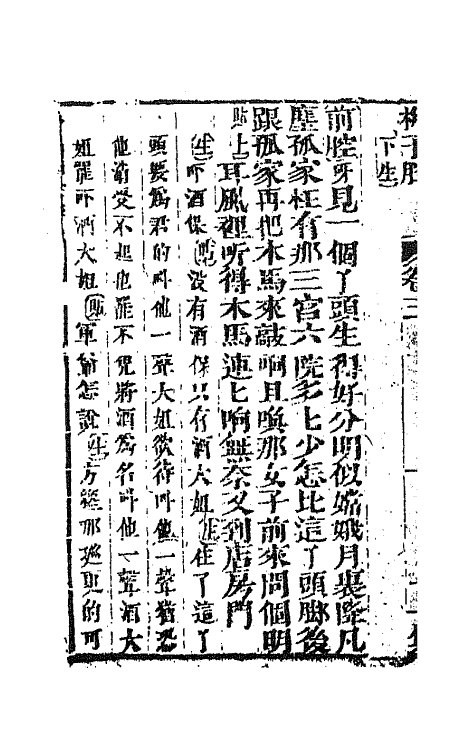 下生
前腔牙見一個丫頭生得好分明似嫦娥月裏墜凡
塵孤家枉有那三宮六院多七少怎比這丫頭脚後
跟孤家再把木馬來敲响且喚那女子前來問個明
貼上耳風裡听得木馬連七响無奈又到店房門
生吓酒保貼没有酒保只有酒大姐生住了這丫
頭要爲君的叫他一聲大姐欲待叫他一聲猶恐
他消受不起也罷不免將酒爲名叫他一聲酒大
姐罷吓酒大姐貼軍爺怎說生方纔那廵更的可